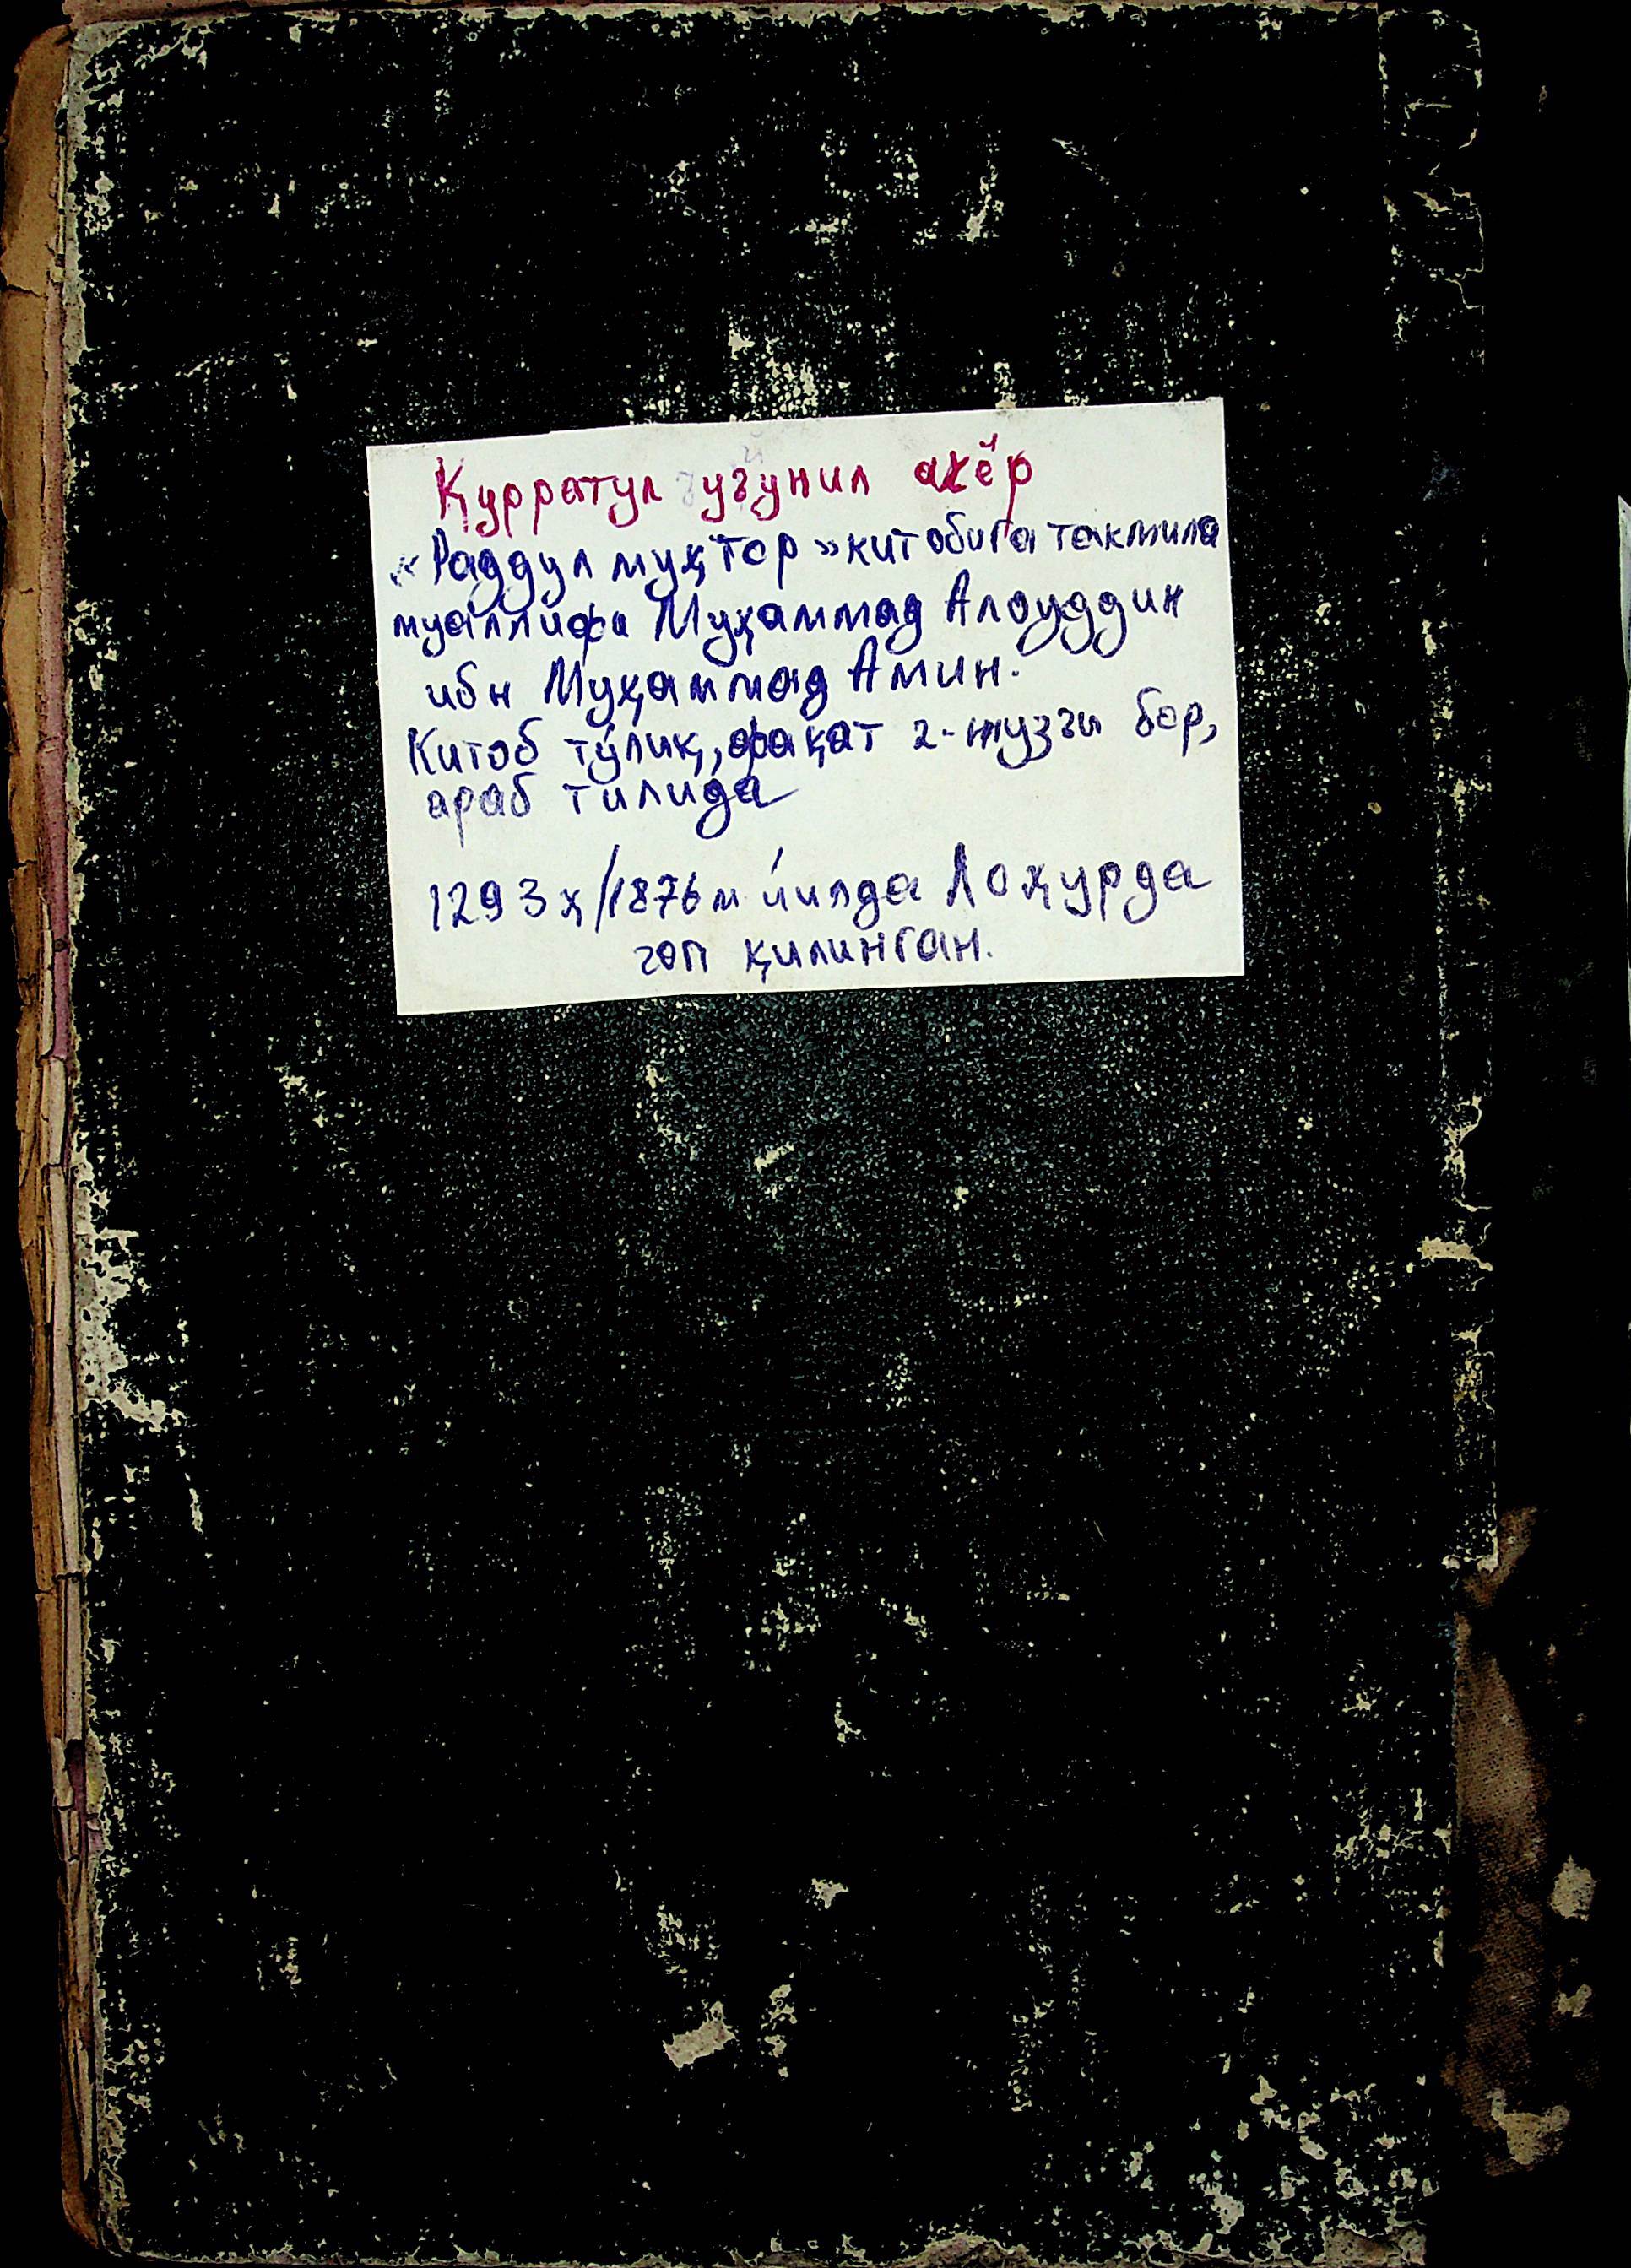 Қурратул уюнил ахёр
«Раддул муҳтор» китобига такмила
муаллифи Муҳаммад Алоуддин
ибн Муҳаммад Амин.
Китоб тўлиқ, фақат 2-жуззи бор,
араб тилида
1293 ҳ/1876 м йилда Лоҳурда
чоп қилинган.